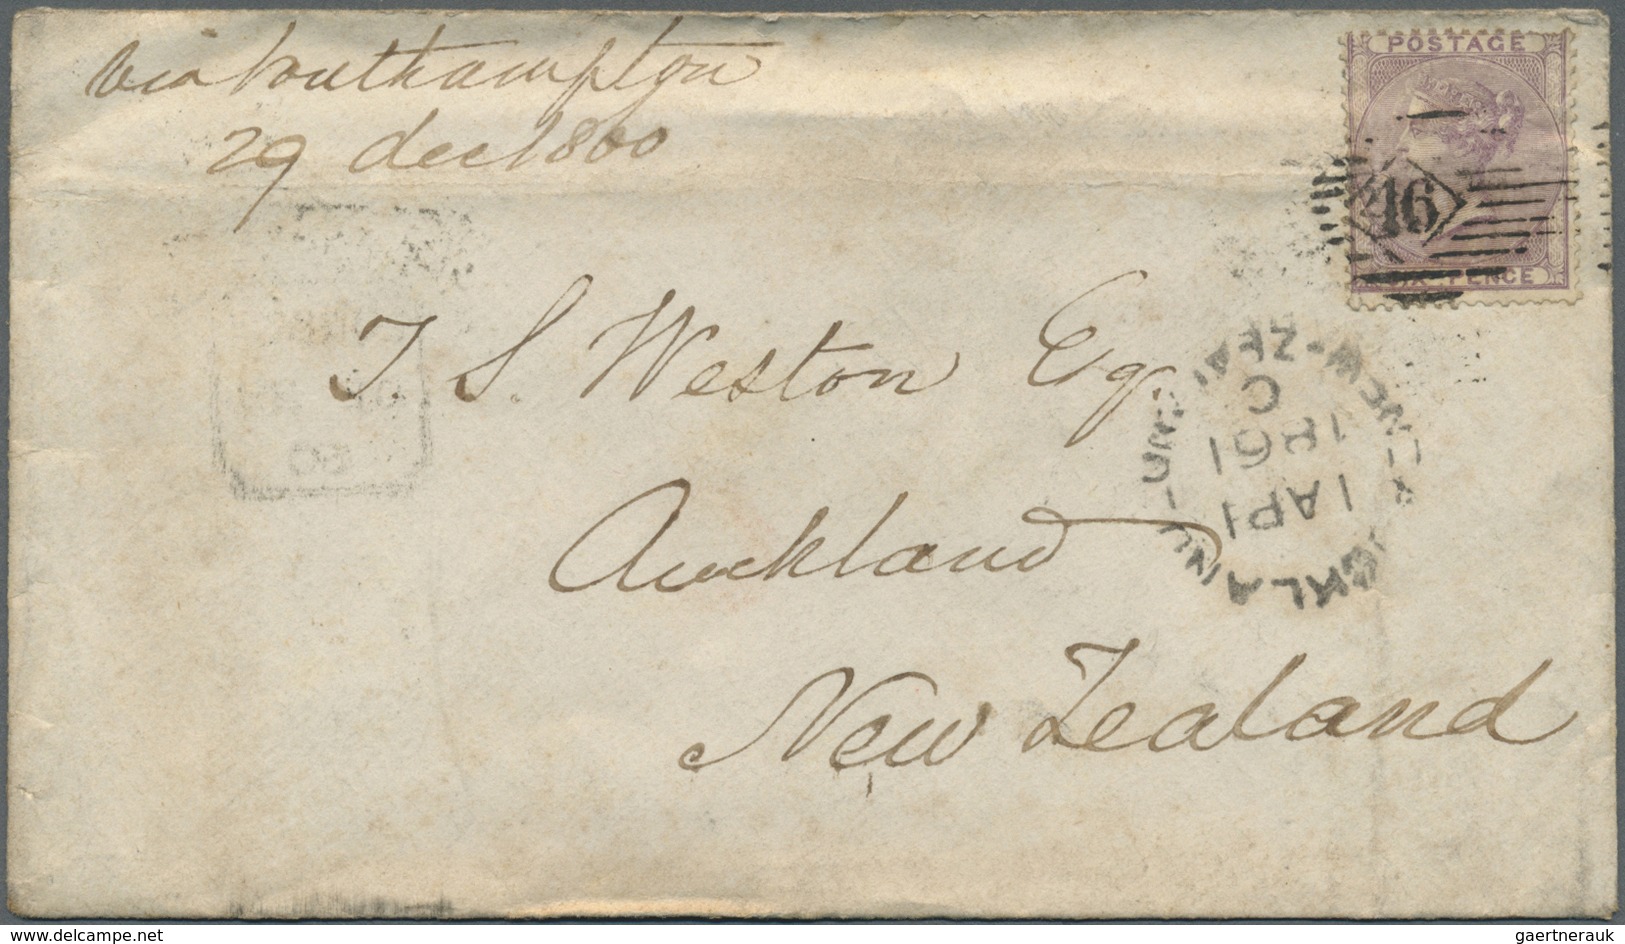 via Southampton
29 dec 1860
POSTAGE
46
SIX PENCE
T. S. Weston Esq.
NEW-ZEAL
C
1861
1 AP
60
Auckland
New Zealand
delcampe.net
gaertnerauk